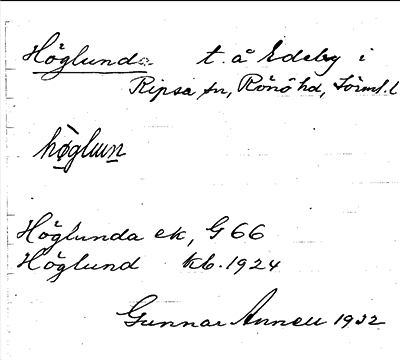 Höglunda t. å Edeby i
Ripsa sn, Rönö hd, Sörml. l
høglun
Höglunda ek, G 66
Höglund kb. 1924
Gunnar Annell 1932